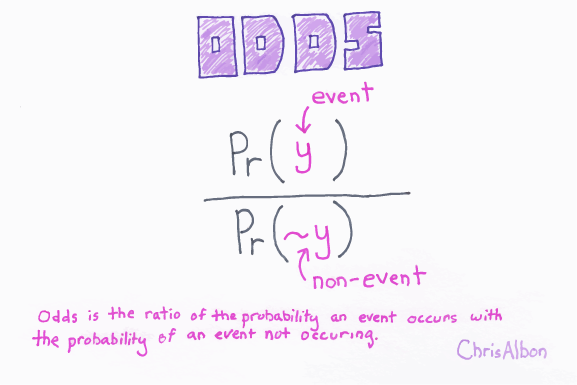 ODDS
event
Pr(y)
Pr(~y)
non-event
Odds is the ratio of the probability an event occurs with
the probability of an event not occuring.
ChrisAlbon